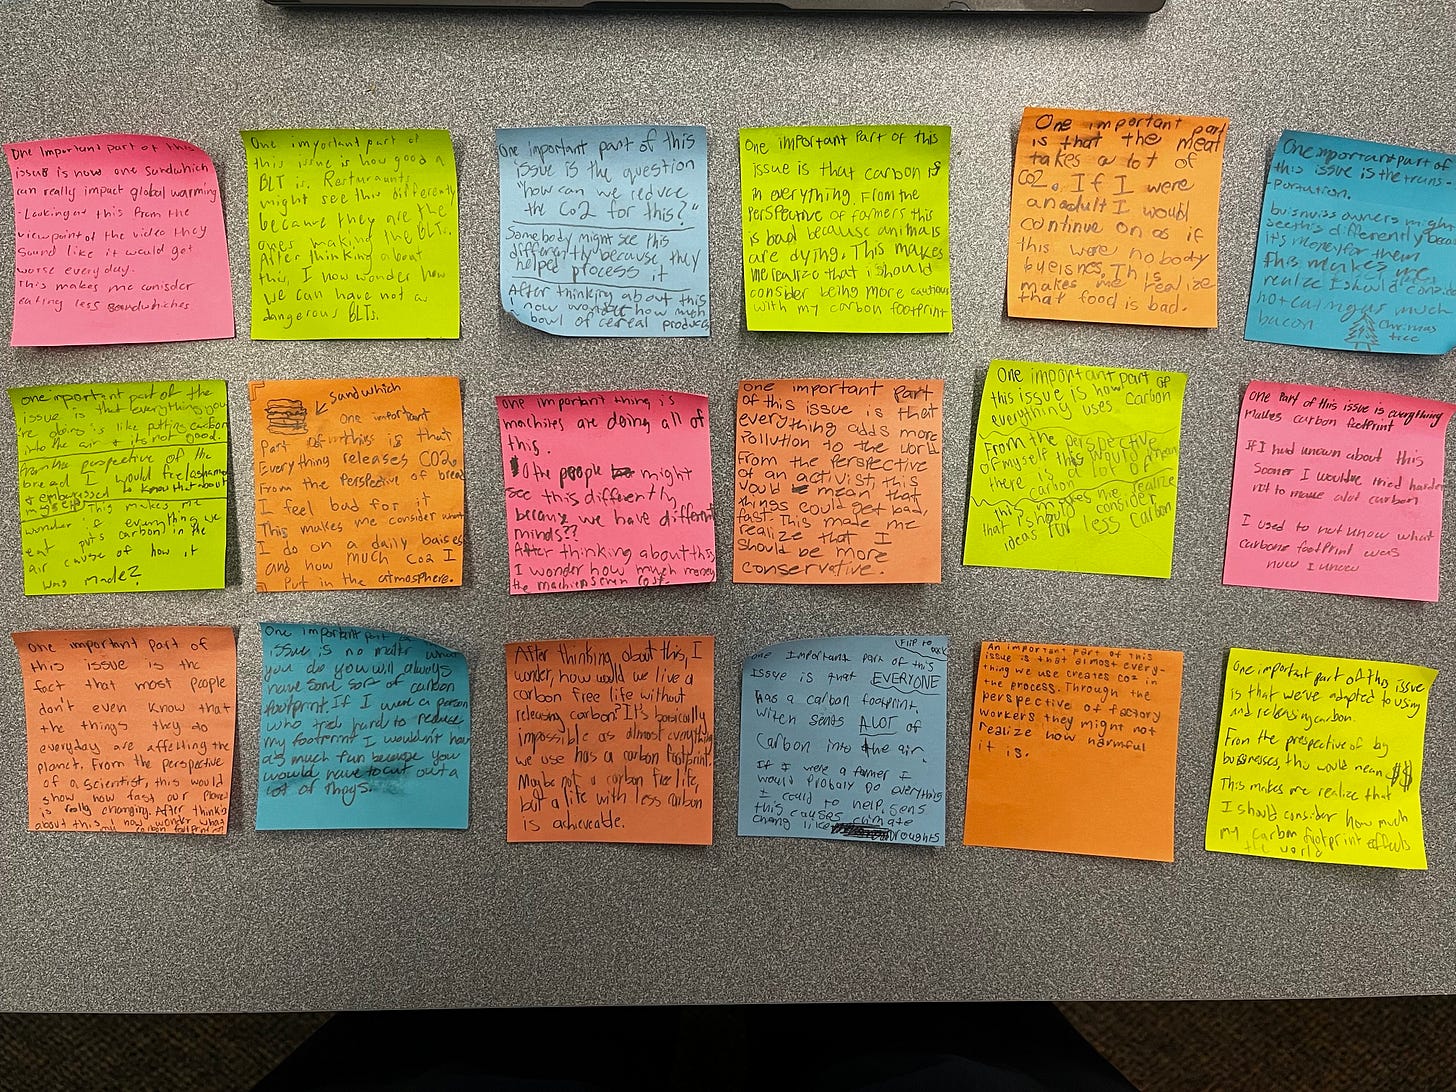 One Important part of this
issue is how one sandwhich
can really impact global warming
- Looking at this from the
viewpoint of the video they
sound like it would get
worse everyday.
This makes me consider
eating less sandwhiches
One important part of
this issue is how good a
BLT is. Resturaunts
might see this differently
because they are the
ones making the BLTs.
After thinking about
this, I now wonder how
we can have not a
dangerous BLTs.
One important part of this
issue is the question
"how can we reduce
the Co2 for this?"
Somebody might see this
differently because they
helped process it
After thinking about this
I now wonder how much
bowl of cereal produce
One important Part of this
issue is that carbon is
in everything. From the
Perspective of farmers this
is bad because animals
are dying. This makes
me realize that i should
consider being more cautious
with my carbon footprint
One important part
is that the meat
takes a lot of
CO2. If I were
an adult I would
continue on as if
this were nobody
bueisnes. This
makes me realize
that food is bad.
One important part of
this issue is the trans-
portation.
buisniss owners might
see this differently beca
it's money for them
this makes me
realize I should conside
not eating as much
bacon
Christmas
tree
one important part of the
issue is that everything you
are doing is like putting carbon
into the air & its not good.
from the perspective of the
bread I would feel ashamed
& embarrassed to know that about
myself. This makes me
wonder if everything we
eat puts carbon in the
air cause of how it
was made?
sandwhich
One important
Part of this is that
Everything releases CO2.
From the Perspective of bread
I feel bad for it
This makes me consider what
I do on a daily baises
and how much Co2 I
Put in the atmosphere.
One important thing is
machines are doing all of
this.
Othe people might
see this differently
becaus we have different
minds??
After thinking about this
I wonder how much money
the machines even cost.
One important Part
of this issue is that
everything adds more
Pollution to the world
From the Perspective
of an activist, this
would mean that
things could get bad,
fast. This made me
realize that I
should be more
conservative.
One important part of
this issue is how
everything uses carbon
From the perspective
of myself this would mean
there is a lot of
carbon
this makes me realize
that i should consider
ideas for less carbon
One Part of this issue is everything
makes carbon footprint
If I had unown about this
Sooner I wouldve tried harder
not to mause alot carbon
I used to not unow what
carbone footprint was
now I unow
One important Part of
this issue is the
fact that most People
don't even know that
the things they do
everyday are affecting the
planet. From the Perspective
of a scientist, this would
show how fast our planet
is really changing. After thinking
about this I now wonder what
my carbon footprint
One important part
issue is no matter what
you do you will always
have some sort of carbon
footprint. If I were a person
who tried hard to reduce
my footprint I wouldn't have
as much fun because you
would have to cut out a
lot of things.
After thinking about this, I
wonder, how would we live a
carbon free life without
releasing carbon? It's basically
impossible as almost everything
we use has a carbon footprint.
Maybe not a carbon free life,
but a life with less carbon
is achieveable.
Flip to
back
One Important part of this
Issue is that EVERYONE
has a carbon footprint,
witch sends A LOT of
Carbon into the air.
If I were a farmer I
would Probably do everything
I could to help. sens
this causes climate
chang like Droughts
An important part of this
issue is that almost every-
thing we use creates co2 in
the process. Through the
perspective of factory
workers they might not
realize how harmful
it is.
One important part of this issue
is that we've adapted to using
and releasing carbon.
From the prespective of big
buissnesses, this would mean $$
This makes me realize that
I should consider how much
my carbon footprint effects
the world